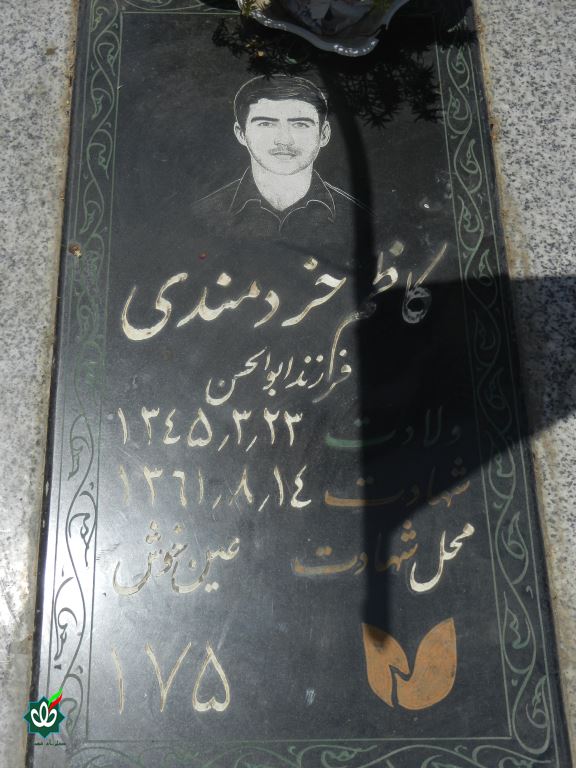 کاظم خردمندی
فرزند ابوالحسن
ولادت ۱۳۴۵٫۳٫۲۳
شهادت ۱۳۶۱٫۸٫۱۴
محل شهادت عین خوش
۱۷۵